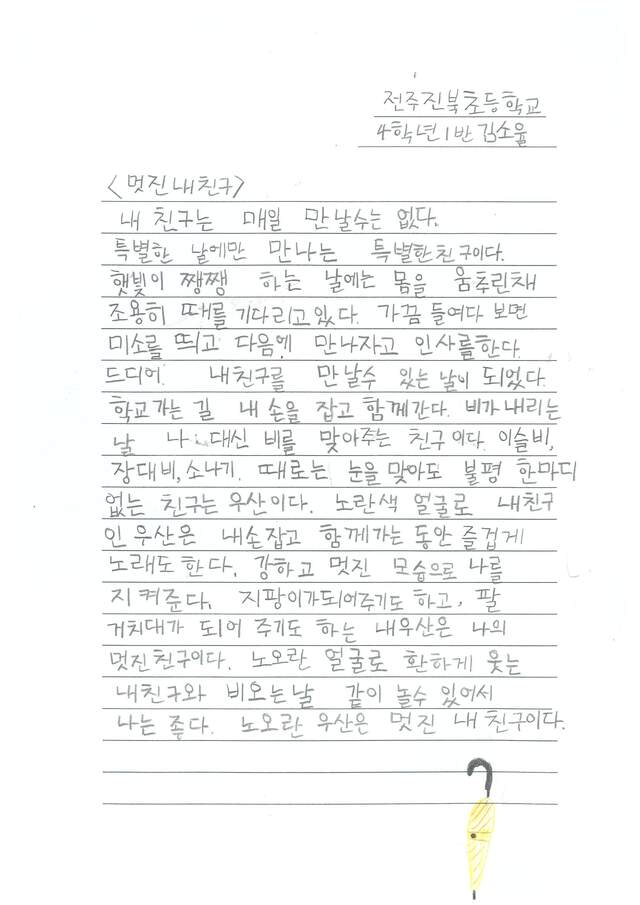 전주진북초등학교
4학년 1반 김소율
<멋진 내 친구>
내 친구는 매일 만날수는 없다.
특별한 날에만 만나는 특별한 친구이다.
햇빛이 쨍쨍 하는 날에는 몸을 움추린채
조용히 때를 기다리고 있다. 가끔 들여다 보면
미소를 띄고 다음에 만나자고 인사를 한다.
드디어. 내친구를 만날수 있는 날이 되었다.
학교가는 길 내 손을 잡고 함께간다. 비가 내리는
날 나 대신 비를 맞아주는 친구이다. 이슬비,
장대비, 소나기. 때로는 눈을 맞아도 불평 한마디
없는 친구는 우산이다. 노란색 얼굴로 내친구
인 우산은 내손잡고 함께가는 동안 즐겁게
노래도 한다. 강하고 멋진 모습으로 나를
지켜준다. 지팡이가되어주기도 하고, 팔
거치대가 되어 주기도 하는 내우산은 나의
멋진친구이다. 노오란 얼굴로 환하게 웃는
내친구와 비오는날 같이 놀수 있어서
나는 좋다. 노오란 우산은 멋진 내 친구이다.